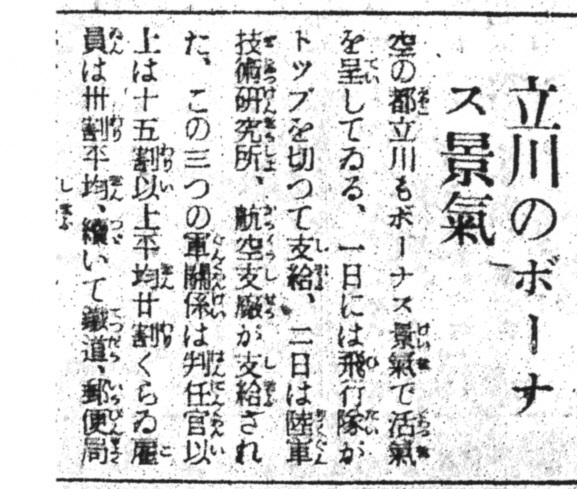 立川のボーナ
ス景氣
空の都立川もボーナス景氣で活氣
を呈してゐる、一日には飛行隊が
トップを切つて支給、二日は陸軍
技術研究所、航空支廠が支給され
た、この三つの軍關係は判任官以
上は十五割以上平均廿割くらゐ雇
員は卅割平均、續いて鐵道、郵便局